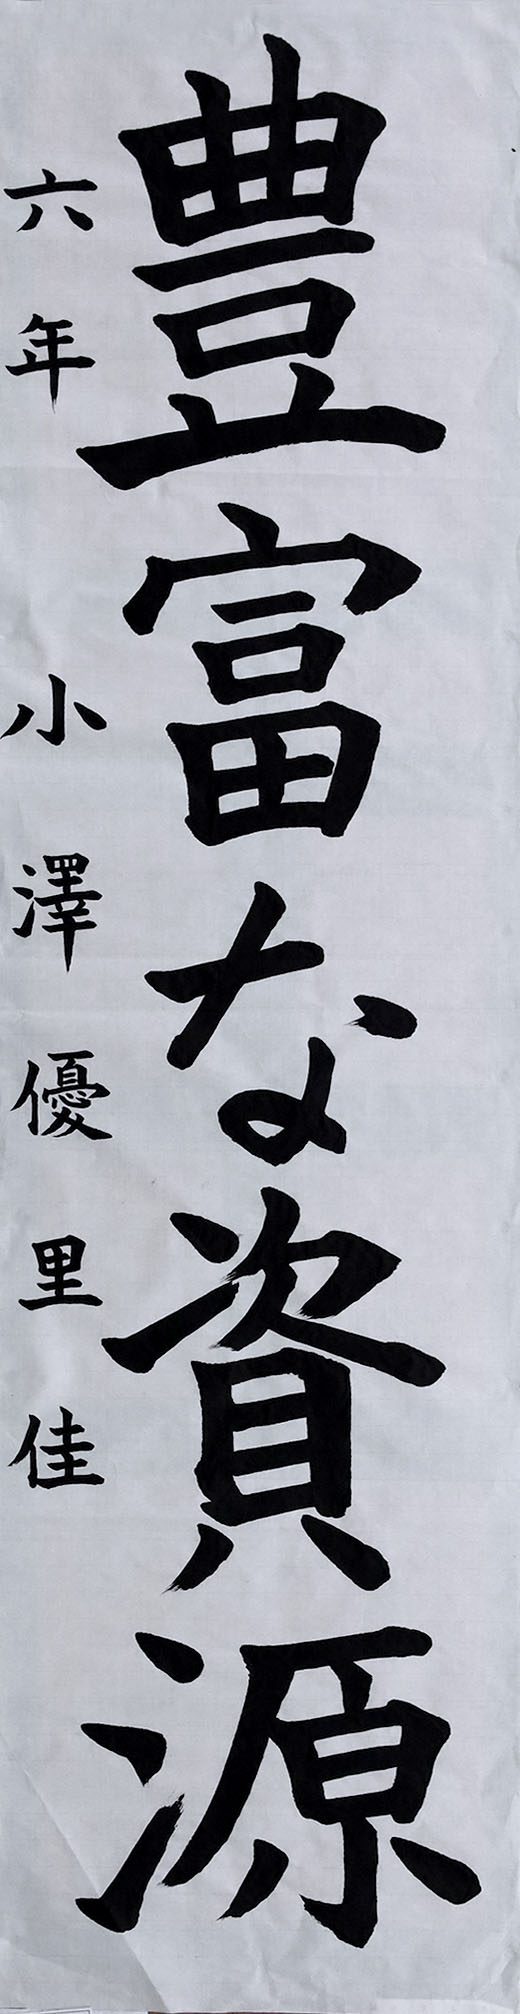 豊富な資源
六年 小澤優里佳